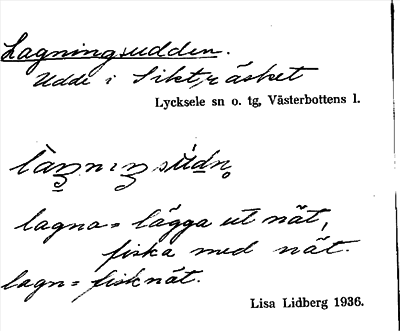 Lagningsudden.
Udde i Siktträsket
Lycksele sn o. tg, Västerbottens l.
lagna = lägga ut nät,
fiska med nät.
lagn = fisknät.
Lisa Lidberg 1936.